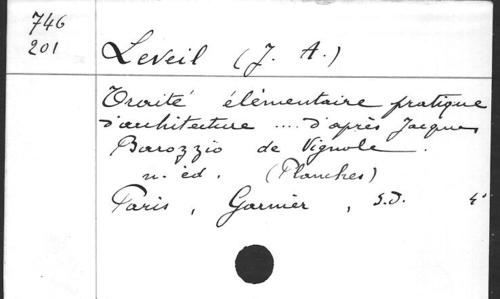 746
201
Leveil (J. A.)
Traité élémentaire pratique
d'architecture .... d'après Jacques
Barozzio de Vignole.
n. éd. (Planches)
Paris, Garnier, S.D. 4°